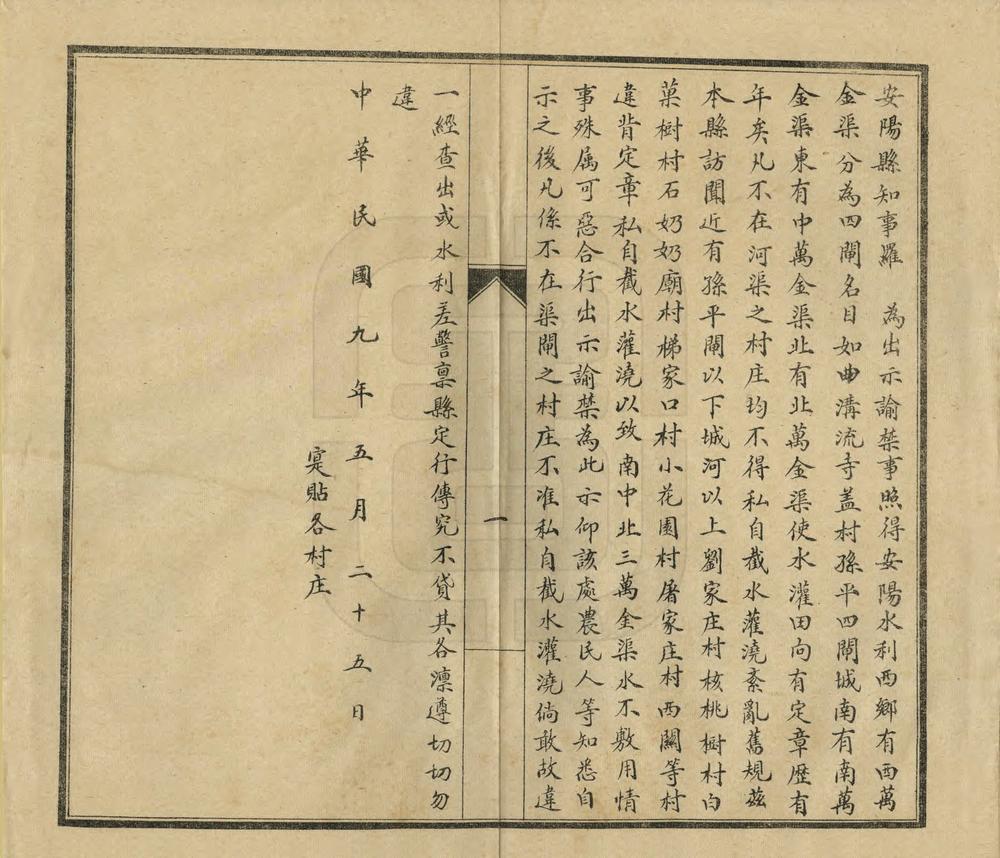 安陽縣知事羅　為出示諭禁事照得安陽水利西鄉有西萬
金渠分為四閘名目如曲溝流寺蓋村孫平四閘城南有南萬
金渠東有中萬金渠北有北萬金渠使水灌田向有定章歷有
年矣凡不在河渠之村庄均不得私自截水灌澆紊亂舊規茲
本縣訪聞近有孫平閘以下城河以上劉家庄村核桃樹村白
菓樹村石奶奶廟村梯家口村小花園村屠家庄村西關等村
違背定章私自截水灌澆以致南中北三萬金渠水不敷用情
事殊属可惡合行出示諭禁為此示仰該處農民人等知悉自
示之後凡係不在渠閘之村庄不准私自截水灌澆倘敢故違
一
一經查出或水利差警禀縣定行傳究不貸其各凛遵切切勿
違
中華民國九年五月二十五日
寔貼各村庄